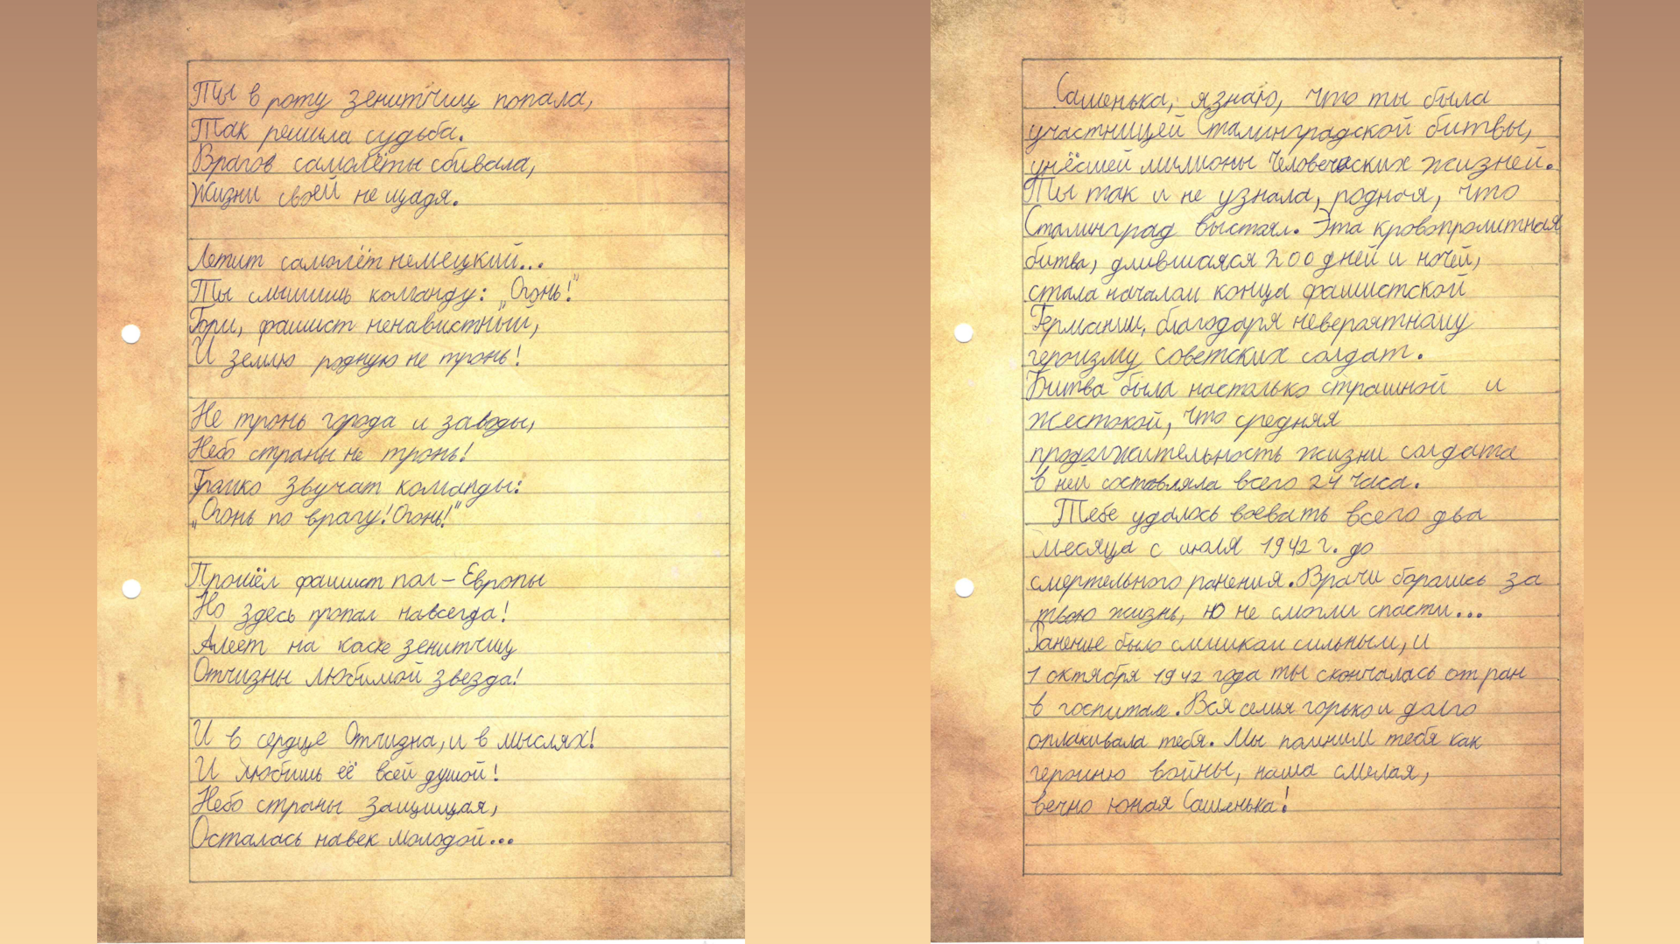 Ты в роту зенитчиц попала,
Так решила судьба.
Врагов самолёты сбивала,
Жизни своей не щадя.
Летит самолёт немецкий...
Ты слышишь команду: „Огонь!"
Гори, фашист ненавистный,
И землю родную не тронь!
Не тронь города и заводы,
Небо страны не тронь!
Громко звучат команды:
„Огонь по врагу! Огонь!"
Прошёл фашист пол-Европы
Но здесь пропал навсегда!
Алеет на каске зенитчиц
Отчизны любимой звезда!
И в сердце Отчизна, и в мыслях!
И любишь её всей душой!
Небо страны защищая,
Осталась навек молодой...
Сашенька, я знаю, что ты была
участницей Сталинградской битвы,
унёсшей милионы человеческих жизней.
Ты так и не узнала, родная, что
Сталинград выстоял. Эта кровопролитная
битва, длившаяся 200 дней и ночей,
стала началом конца фашистской
Германии, благодаря невероятному
героизму советских солдат.
Битва была настолько страшной и
жестокой, что средняя
продолжительность жизни солдата
в ней составляла всего 24 часа.
Тебе удалось воевать всего два
месяца с июля 1942 г. до
смертельного ранения. Врачи боролись за
твою жизнь, но не смогли спасти...
Ранение было слишком сильным, и
1 октября 1942 года ты скончалась от ран
в госпитале. Вся семья горько и долго
оплакивала тебя. Мы помним тебя как
героиню войны, наша смелая,
вечно юная Сашенька!